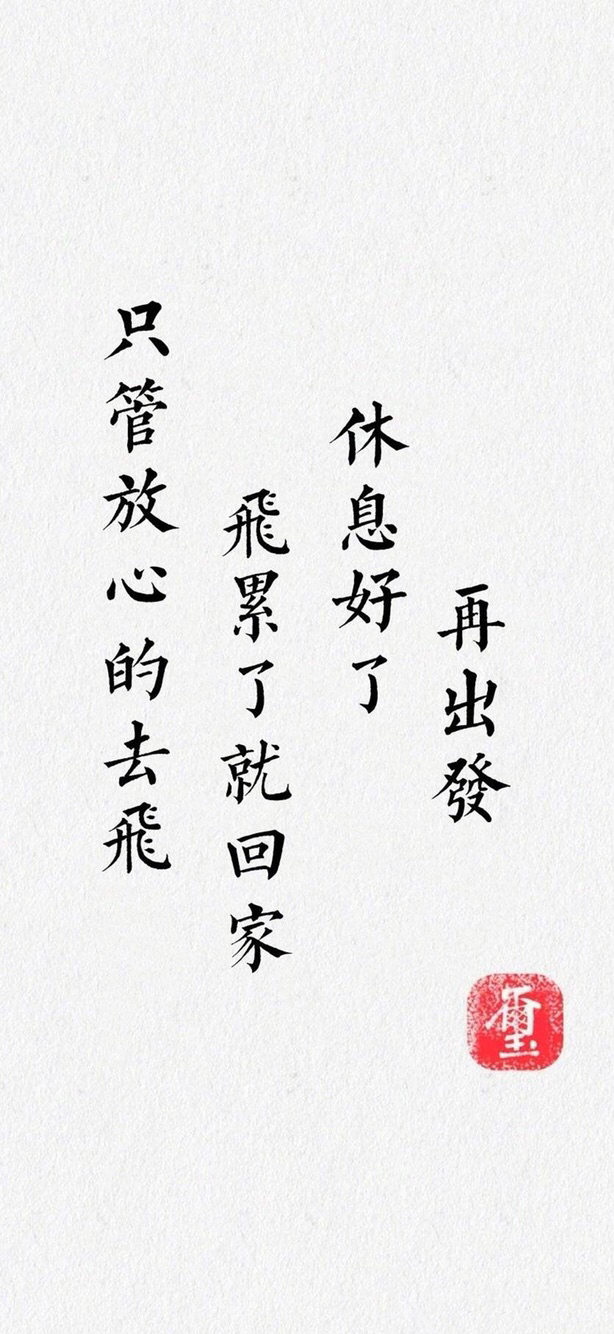 只管放心的去飛
飛累了就回家
休息好了
再出發
璽